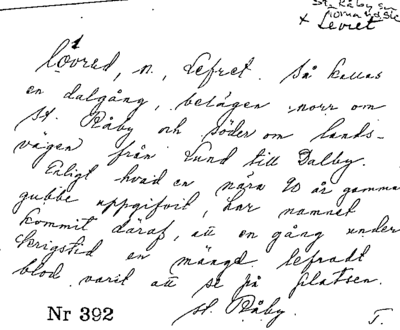 St. Råby sn
x Levret
lövred, n, Lefret. Så kallas
en dalgång, belägen norr om
St. Råby och söder om lands-
vägen från Lund till Dalby.
Enligt hvad en nära 90 år gammal
gubbe uppgifvit, har namnet
kommit däraf, att en gång under
krigstid en mängd lefradt
blod varit att se på platsen.
St. Råby.
Nr 392
T.